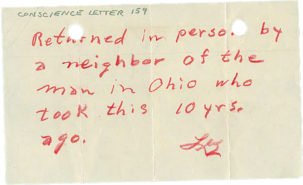 CONSCIENCE LETTER 159
Returned in perso. by
a neighbor of the
man in Ohio who
took this 10 yrs.
ago.